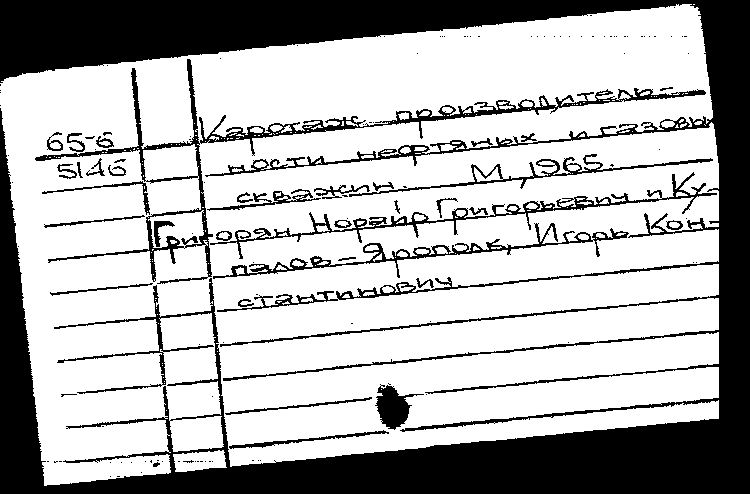 65-6
5146
Каротаж производитель-
ности нефтяных и газовы
скважин. М., 1965.
Григорян, Норайр Григорьевич и Ку-
палов-Ярополк, Игорь Кон-
стантинович.